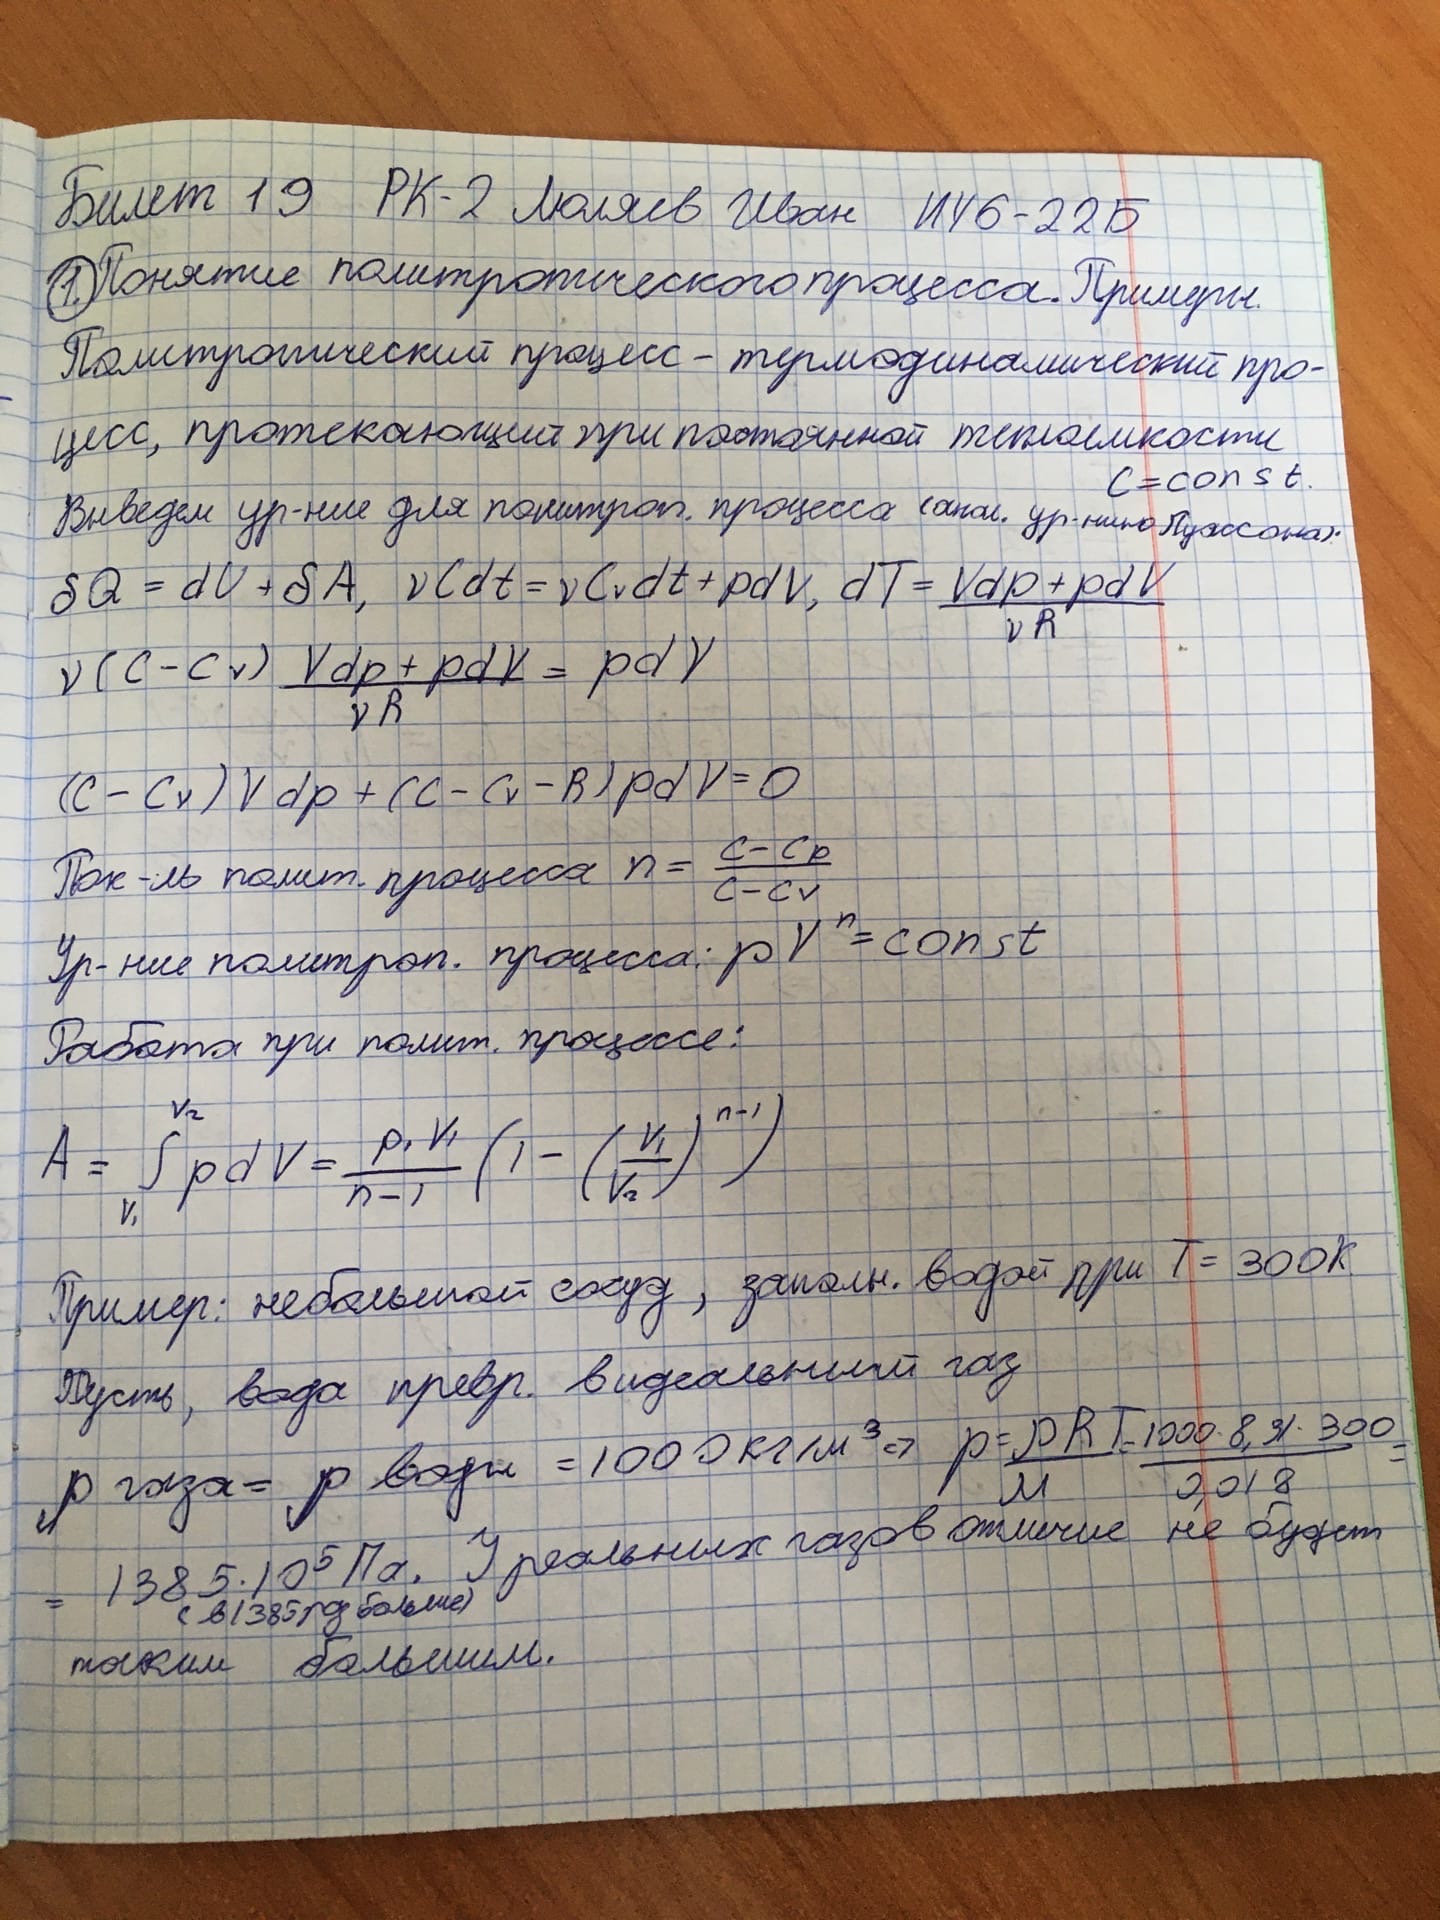 Билет 19 РК-2 Люляев Иван ИУ6-22Б
1. Понятие политропического процесса. Примеры.
Политропический процесс – термодинамический про-
цесс, протекающий при постоянной теплоёмкости
C = const.
Выведем ур-ние для политроп. процесса (анал. ур-нию Пуассона):
δQ = dU + δA, νCdt = νCvdt + pdV, dT = (Vdp + pdV)/(νR)
ν(C – Cv) (Vdp + pdV)/(νR) = pdV
(C – Cv)Vdp + (C – Cv – R)pdV = 0
Пок-ль полит. процесса n = (C – Cp)/(C – Cv)
Ур-ние политроп. процесса: pVⁿ = const
Работа при полит. процессе:
A = ∫_{V₁}^{V₂} pdV = (p₁V₁)/(n–1) (1 – (V₁/V₂)^{n–1})
Пример: небольшой сосуд, заполн. водой при T = 300К
Пусть, вода превр. в идеальный газ
ρ газа = ρ воды = 1000кг/м³ => p = ρRT/M = (1000·8,31·300)/0,018 =
= 1385·10⁵ Па. У реальных газов отличие не будет
(в 1385 раз больше)
таким большим.